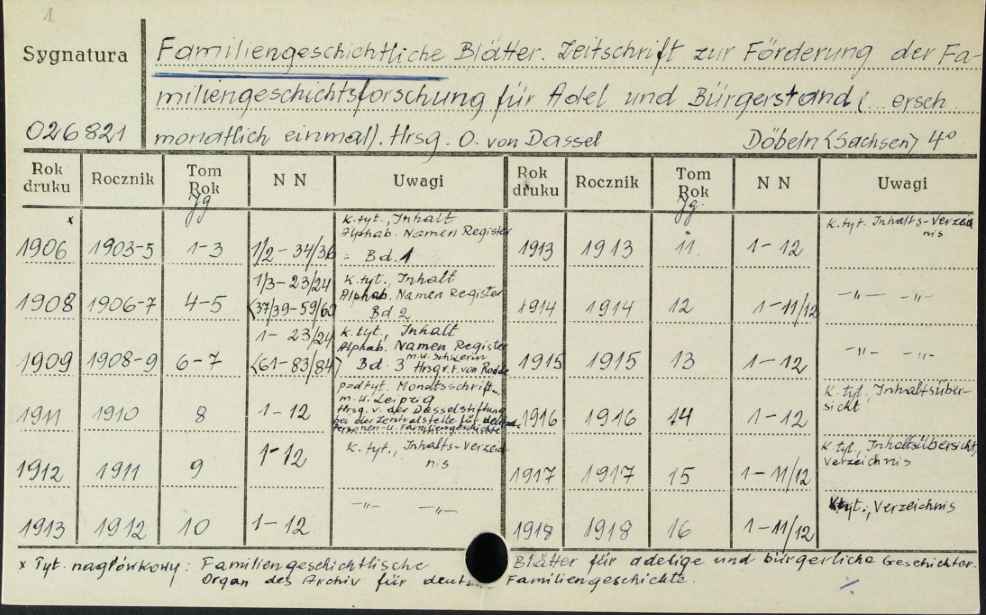 1
Sygnatura
Familiengeschichtliche Blätter. Zeitschrift zur Förderung der Fa-
miliengeschichtsforschung für Adel und Bürgerstand (... ersch.
026821
monatlich einmal). Hrsg. O. von Dassel Döbeln (Sachsen) 4°
Rok druku Rocznik Tom Rok Jg N N Uwagi Rok druku Rocznik Tom Rok Jg. N N Uwagi
x
1906 1903-5 1-3 1/2-34/36 K. tyt., Inhalt
Alphab. Namen Register
= Bd. 1
1913 1913 11 1-12 K. tyt. Inhalts-Verzeich
nis
1908 1906-7 4-5 1/3-23/24
(37/39-59/60) K. tyt., Inhalt
Alphab. Namen Register
Bd 2
1914 1914 12 1-11/12 -"- -"-
1909 1908-9 6-7 1-23/24
(61-83/84) K. tyt., Inhalt
Alphab. Namen Register
Bd. 3 m.w. Schwerin
Hrsg. v.
1915 1915 13 1-12 -"- -"-
1911 1910 8 1-12 podtyt. Monatsschrift
m.w. Leipzig
Hrsg. v. der Dasselstiftung
bei der Zentralstelle für
Personen- u. Familiengeschichte
1916 1916 14 1-12 K. tyt., Inhaltsüber-
sicht
1912 1911 9 1-12 K. tyt., Inhalts-Verzeich
nis
1917 1917 15 1-11/12 K. tyt., Inhaltsübersicht,
Verzeichnis
1913 1912 10 1-12 -"- -"-
1918 1918 16 1-11/12 K. tyt., Verzeichnis
x Tyt. nagłówkowy: Familiengeschichtlische Blätter für adelige und bürgerliche Geschlechter.
Organ des Archiv für Familiengeschichte.